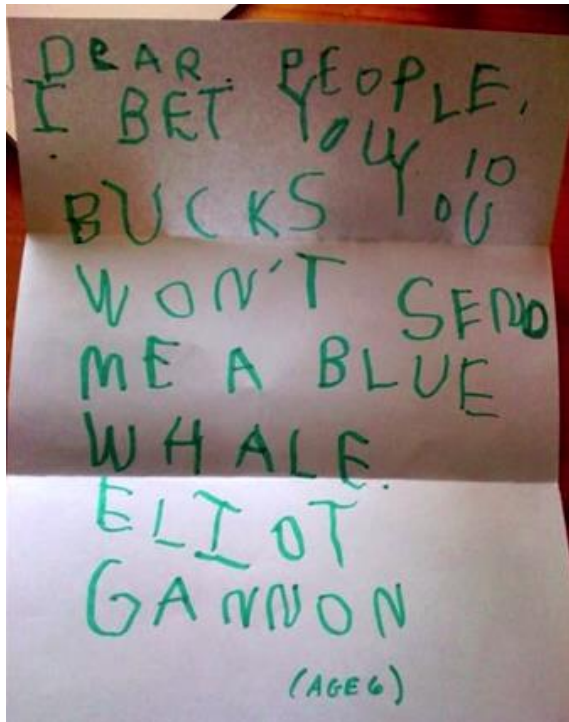 DEAR. PEOPLE,
I BET YOU 10
BUCKS YOU
WON'T SEND
ME A BLUE
WHALE.
ELIOT
GANNON
(AGE 6)